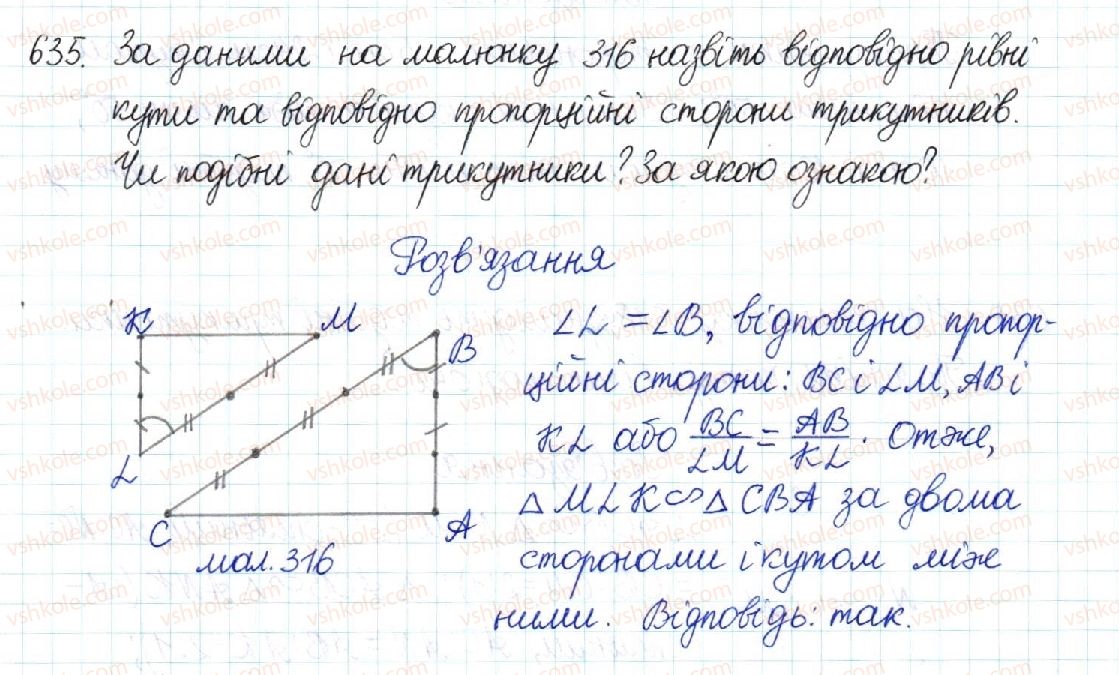 635. За даними на малюнку 316 назвіть відповідно рівні
кути та відповідно пропорційні сторони трикутників.
Чи подібні дані трикутники? За якою ознакою?
Розв'язання
K M
B
L
C A
мал. 316
∠L = ∠B, відповідно пропор-
ційні сторони: BC і LM, AB і
KL або BC/LM = AB/KL. Отже,
△MLK ∽ △CBA за двома
сторонами і кутом між
ними. Відповідь: так.